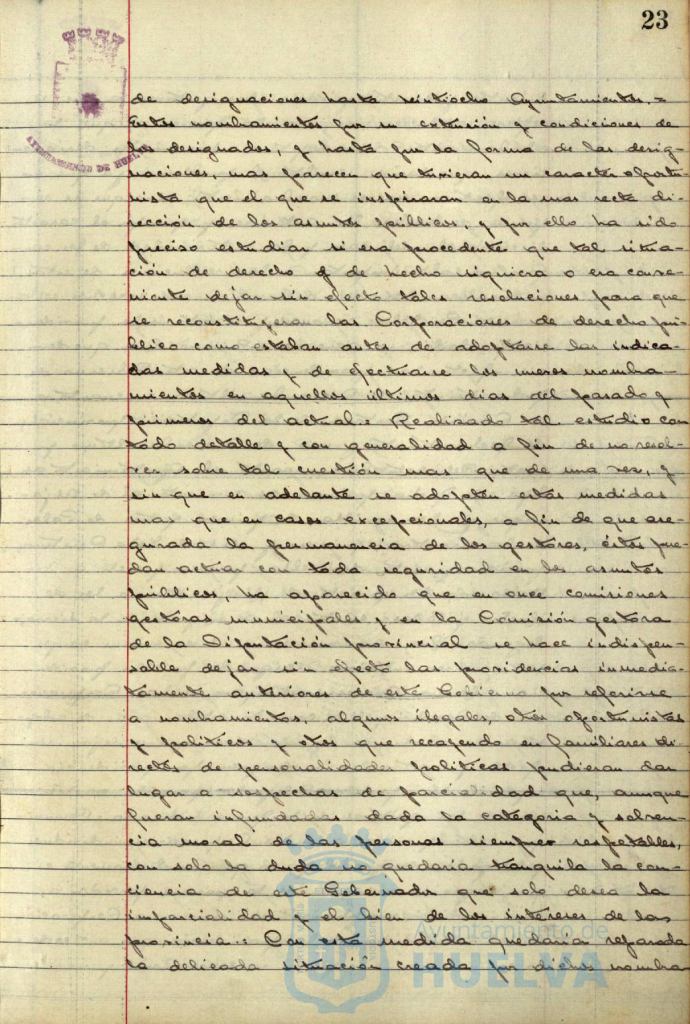 23
AYUNTAMIENTO DE HUELVA
de designaciones hasta veintiocho Ayuntamientos.=
Estos nombramientos por su extensión y condiciones de
los designados, y hasta por la forma de las desig-
naciones, mas parecen que tuvieran un caracter oportu-
nista que el que se inspiraran en la mas recta di-
rección de los asuntos públicos, y por ello ha sido
preciso estudiar si era procedente que tal situa-
ción de derecho y de hecho siguiera o era conve-
niente dejar sin efecto tales resoluciones para que
se reconstituyeran las Corporaciones de derecho pú-
blico como estaban antes de adoptarse las indica-
das medidas y de efectuarse los nuevos nombra-
mientos en aquellos últimos dias del pasado y
primeros del actual.= Realizado tal estudio con
todo detalle y con generalidad a fin de no resol-
ver sobre tal cuestión mas que de una vez, y
sin que en adelante se adopten estas medidas
mas que en casos excepcionales, a fin de que ase-
gurada la permanencia de los gestores, éstos pue-
dan actuar con toda seguridad en los asuntos
públicos, ha aparecido que en once comisiones
gestoras municipales y en la Comisión gestora
de la Diputación provincial se hace indispen-
sable dejar sin efecto las providencias inmedia-
tamente anteriores de este Gobierno por referirse
a nombramientos, algunos ilegales, otros oportunistas
y politicos y otros que recayendo en familiares di-
rectos de personalidades politicas pudieran dar
lugar a sospechas de parcialidad que, aunque
fueran infundadas dada la categoria y solven-
cia moral de las personas siempre respetables,
con solo la duda no quedaria tranquila la con-
ciencia de este Gobernador que solo desea la
imparcialidad y el bien de los intereses de las
provincia.= Con esta medida quedaria reparada
la delicada situación creada por dichos nombra-
Ayuntamiento de
HUELVA